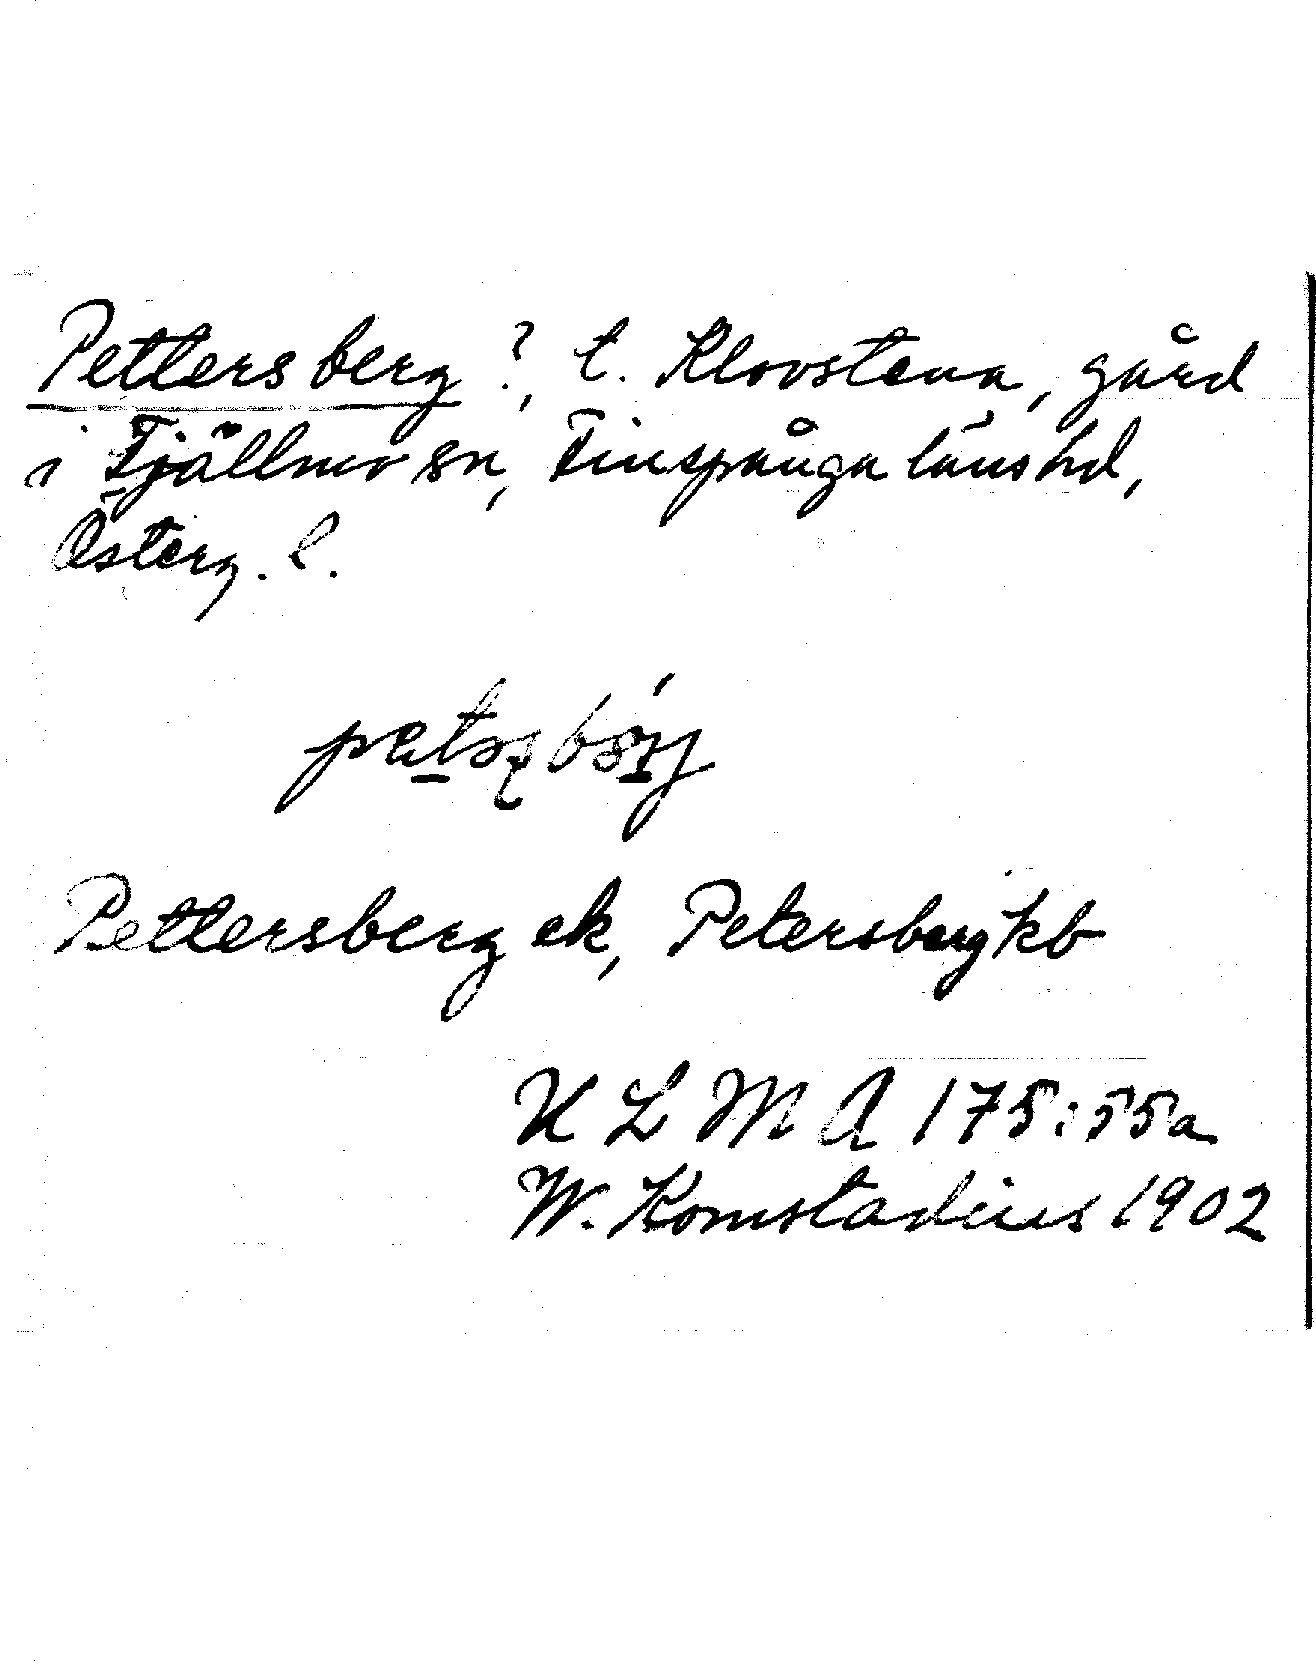 Pettersberg?, t. Klovstena, gård
i Tjällmo sn, Finspånga läns hd,
Österg. l.
Pettersberg ek, Petersberg kb
K L M A 175:55a
W. Komstadius 1902